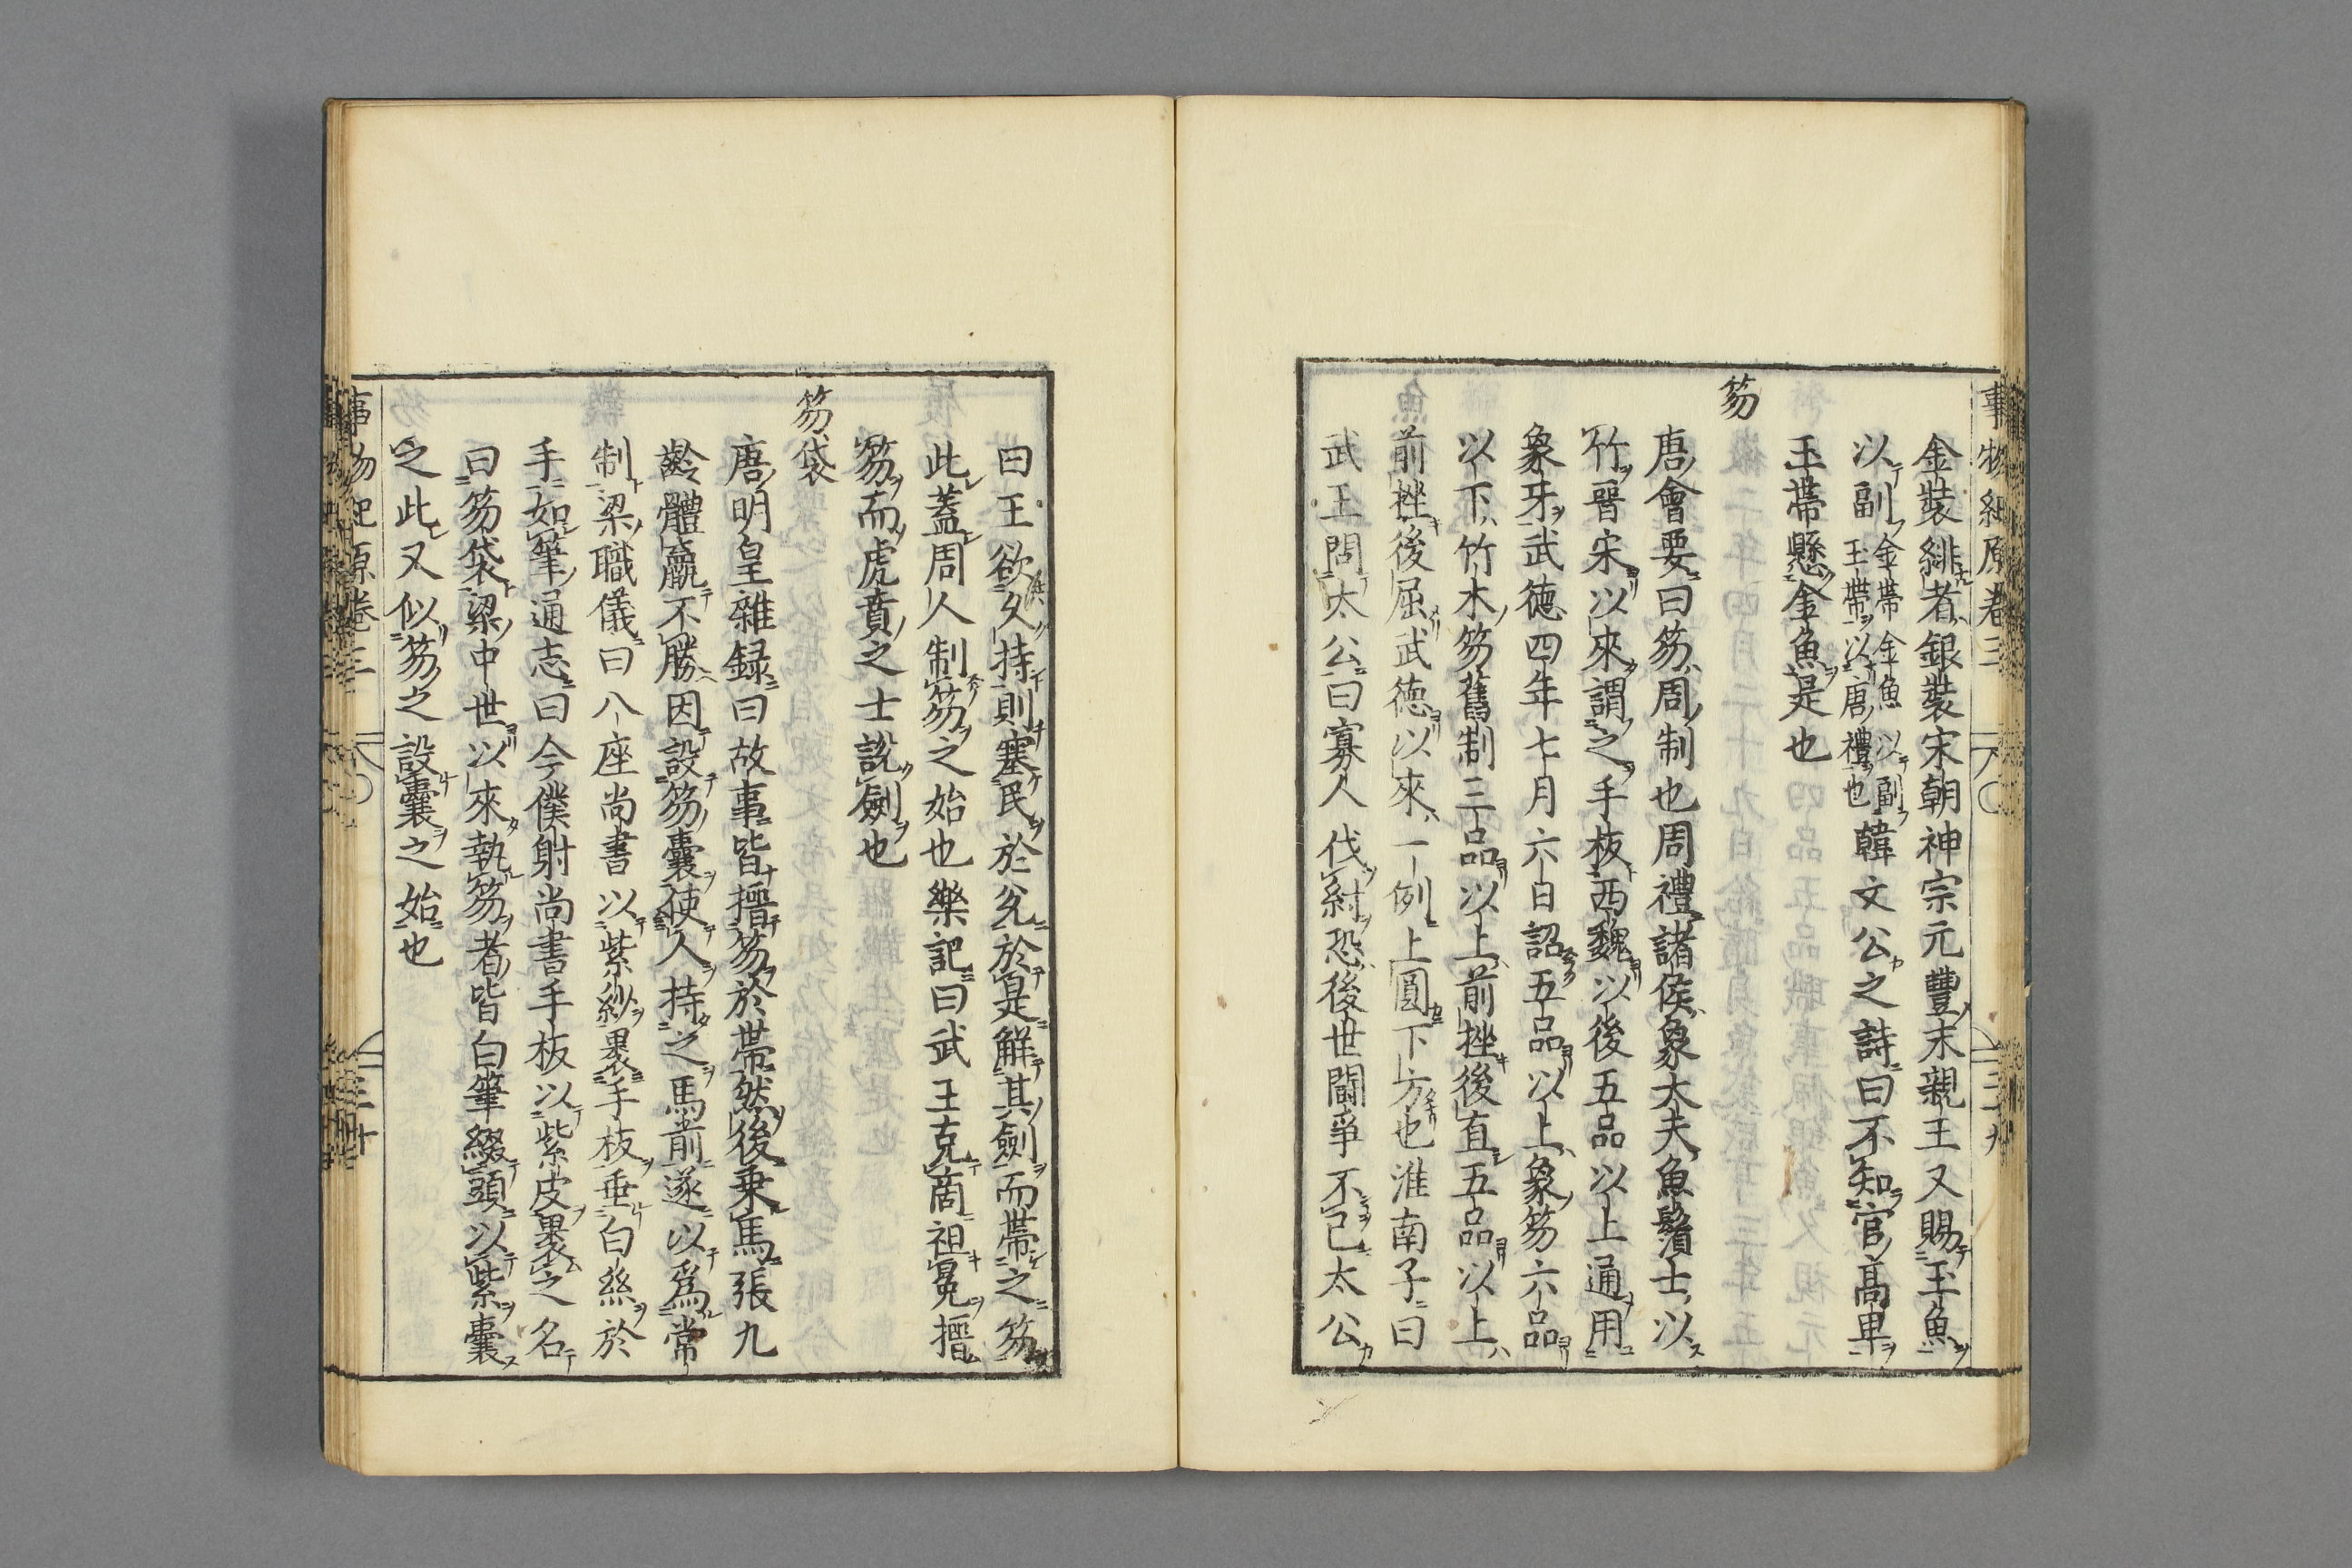 事物紀原卷三
三九
金裝緋者銀裝宋朝神宗元豐末親王又賜玉魚
以副金帶金魚以副玉帶以唐禮也韓文公之詩曰不知官高卑
玉帶懸金魚是也
笏
唐會要曰笏周制也周禮諸侯象大夫魚鬚士以
竹晉宋以來謂之手板西魏以後五品以上通用
象牙武德四年七月六日詔五品以上象笏六品
以下竹木笏舊制三品以上前挫後直五品以上
前挫後屈武德以來一例上圓下方也淮南子曰
武王問太公曰寡人伐紂恐後世鬪爭不已太公
曰王欲久持則塞民於兌於是解其劍而帶之笏
此蓋周人制笏之始也樂記曰武王克商袒冕搢
笏而虎賁之士說劍也
笏袋
唐明皇雜録曰故事皆搢笏於帶然後乗馬張九
齡體羸不勝因設笏囊使人持之馬前遂以爲常
制梁職儀曰八座尚書以紫紗裹手板垂白絲於
手如筆通志曰今僕射尚書手板以紫皮裹之名
曰笏袋梁中世以來執笏者皆白筆綴頭以紫囊
之此又似笏之設囊之始也
事物紀原卷三
三十